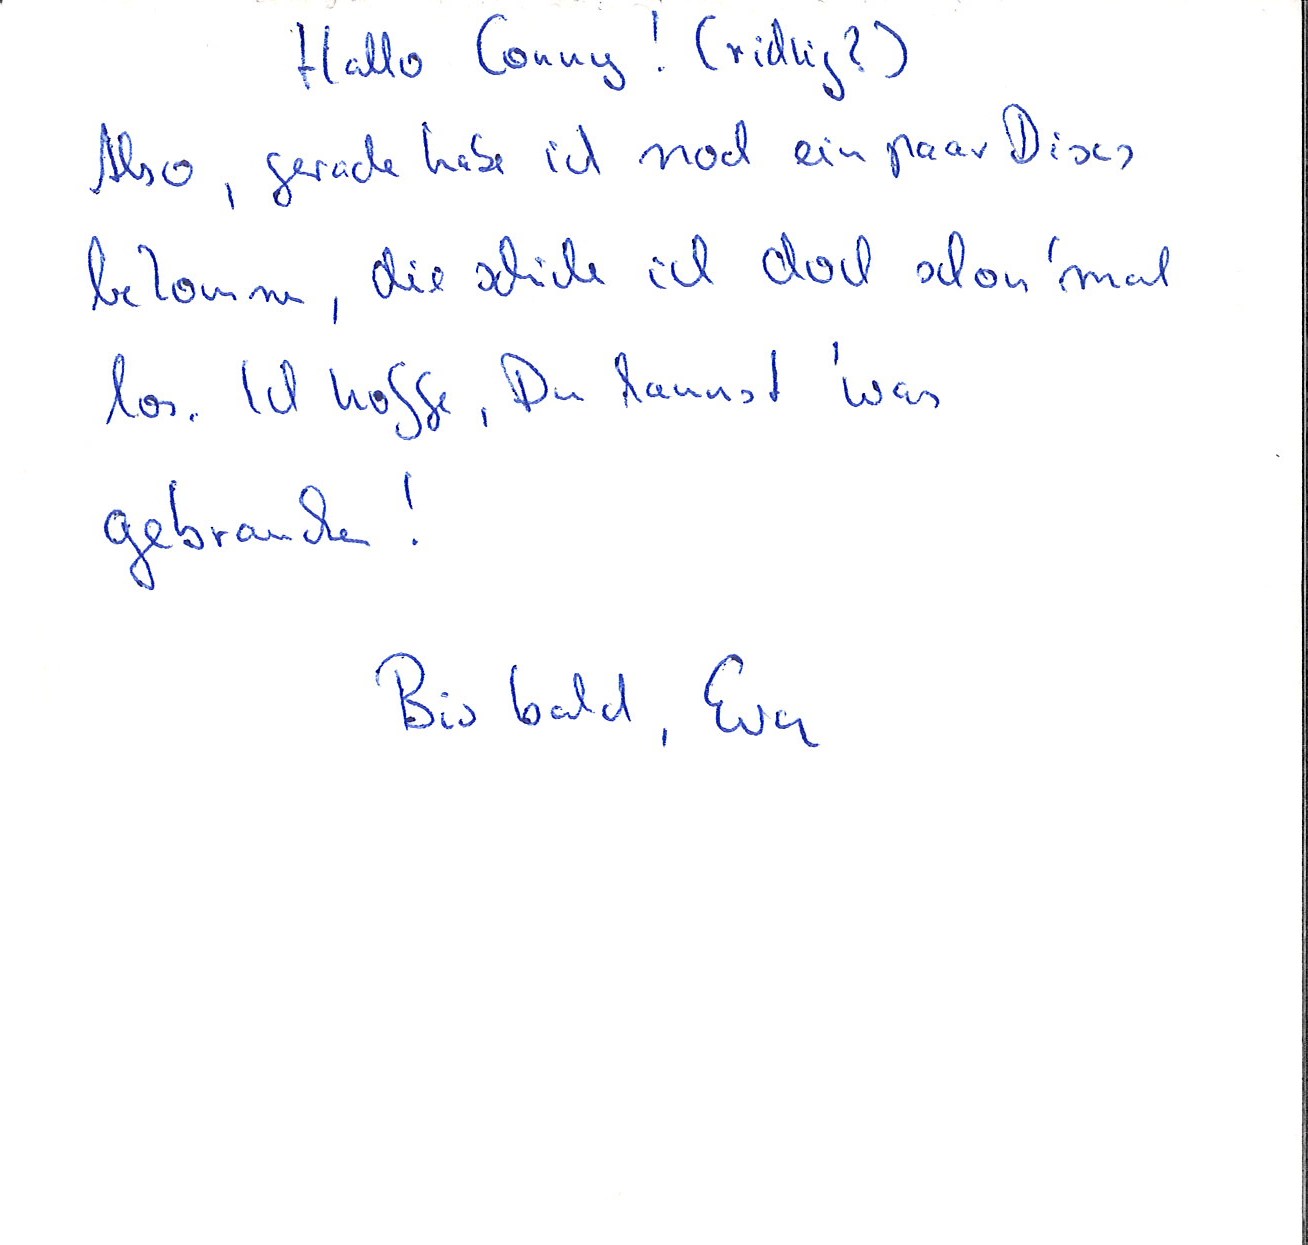 Hallo Conny! (richtig?)
Also, gerade habe ich noch ein paar Discs
bekommen, die schicke ich doch schon 'mal
los. Ich hoffe, Du kannst 'was
gebrauchen!
Bis bald, Eva